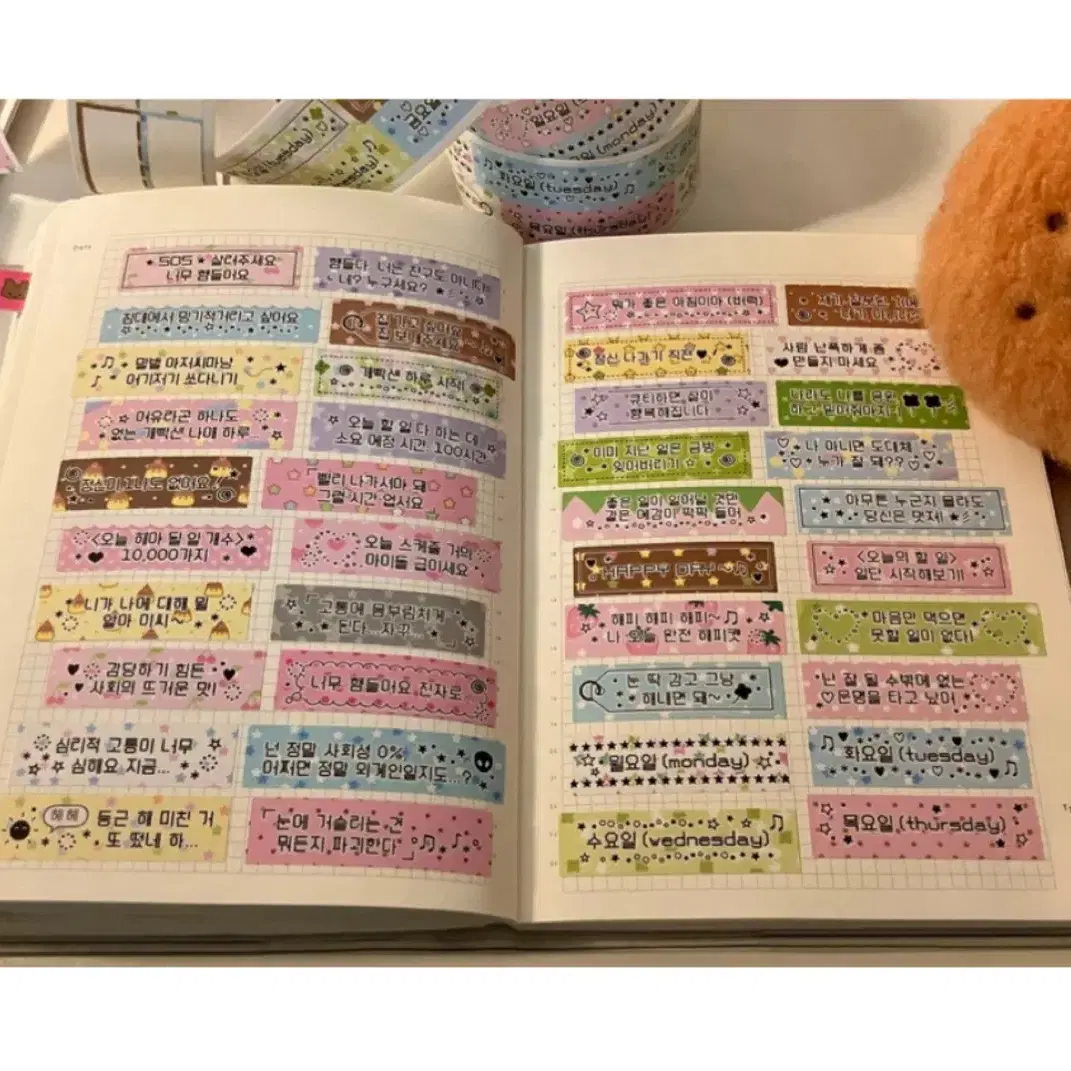 (tuesday)
일요일
(monday)
화요일 (tuesday)
목요일 (thursday)
Date
SOS 살려주세요
너무 힘들어요
힘들다.. 너는 친구도 아니다
네? 누구세요?
침대에서 밍기적거리고 싶어요
집 가고 싶어요
집 보내주세요
말벌 아저씨마냥
여기저기 쏘다니기
개빡센 하루 시작!
여유라곤 하나도
없는 개빡센 나에 하루
오늘 할 일 다 하는 데
소요 예정 시간: 100시간
정신이 1나도 없어요!
빨리 나가셔야 돼
그럴 시간 없서요
<오늘 해야 될 일 개수>
10,000가지
오늘 스케줄 거의
아이돌 급이세요
니가 나에 대해 뭘
알아 이씨~
고통에 몸부림치게
된다...자꾸...
감당하기 힘든
사회의 뜨거운 맛!
너무 힘들어요 진짜로
심리적 고통이 너무
심해요 지금...
넌 정말 사회성 0%
어쩌면 정말 외계인일지도...?
헤헤
둥근 해 미친 거
또 떴네 하...
눈에 거슬리는 건
뭐든지 파괴한다
뭐가 좋은 아침이야 (버럭)
정신 나가기 직전
사람 난폭하게 좀
만들지 마세요
큐티하면 삶이
행복해집니다
나라도 나를 응원
하고 믿어줘야지
이미 지난 일은 금방
잊어버리기
나 아니면 도대체
누가 잘 돼??
좋은 일이 일어날 것만
같은 예감이 팍팍 들어
아무튼 누군지 몰라도
당신은 멋져!
HAPPY DAY~♫
<오늘의 할 일>
일단 시작해보기!
해피 해피 해피~
나 오늘 완전 해피캣
마음만 먹으면
못할 일이 없다!
눈 딱 감고 그냥
해내면 돼~
넌 잘 될 수밖에 없는
운명을 타고 났어
월요일 (monday)
화요일 (tuesday)
수요일 (wednesday)
목요일 (thursday)